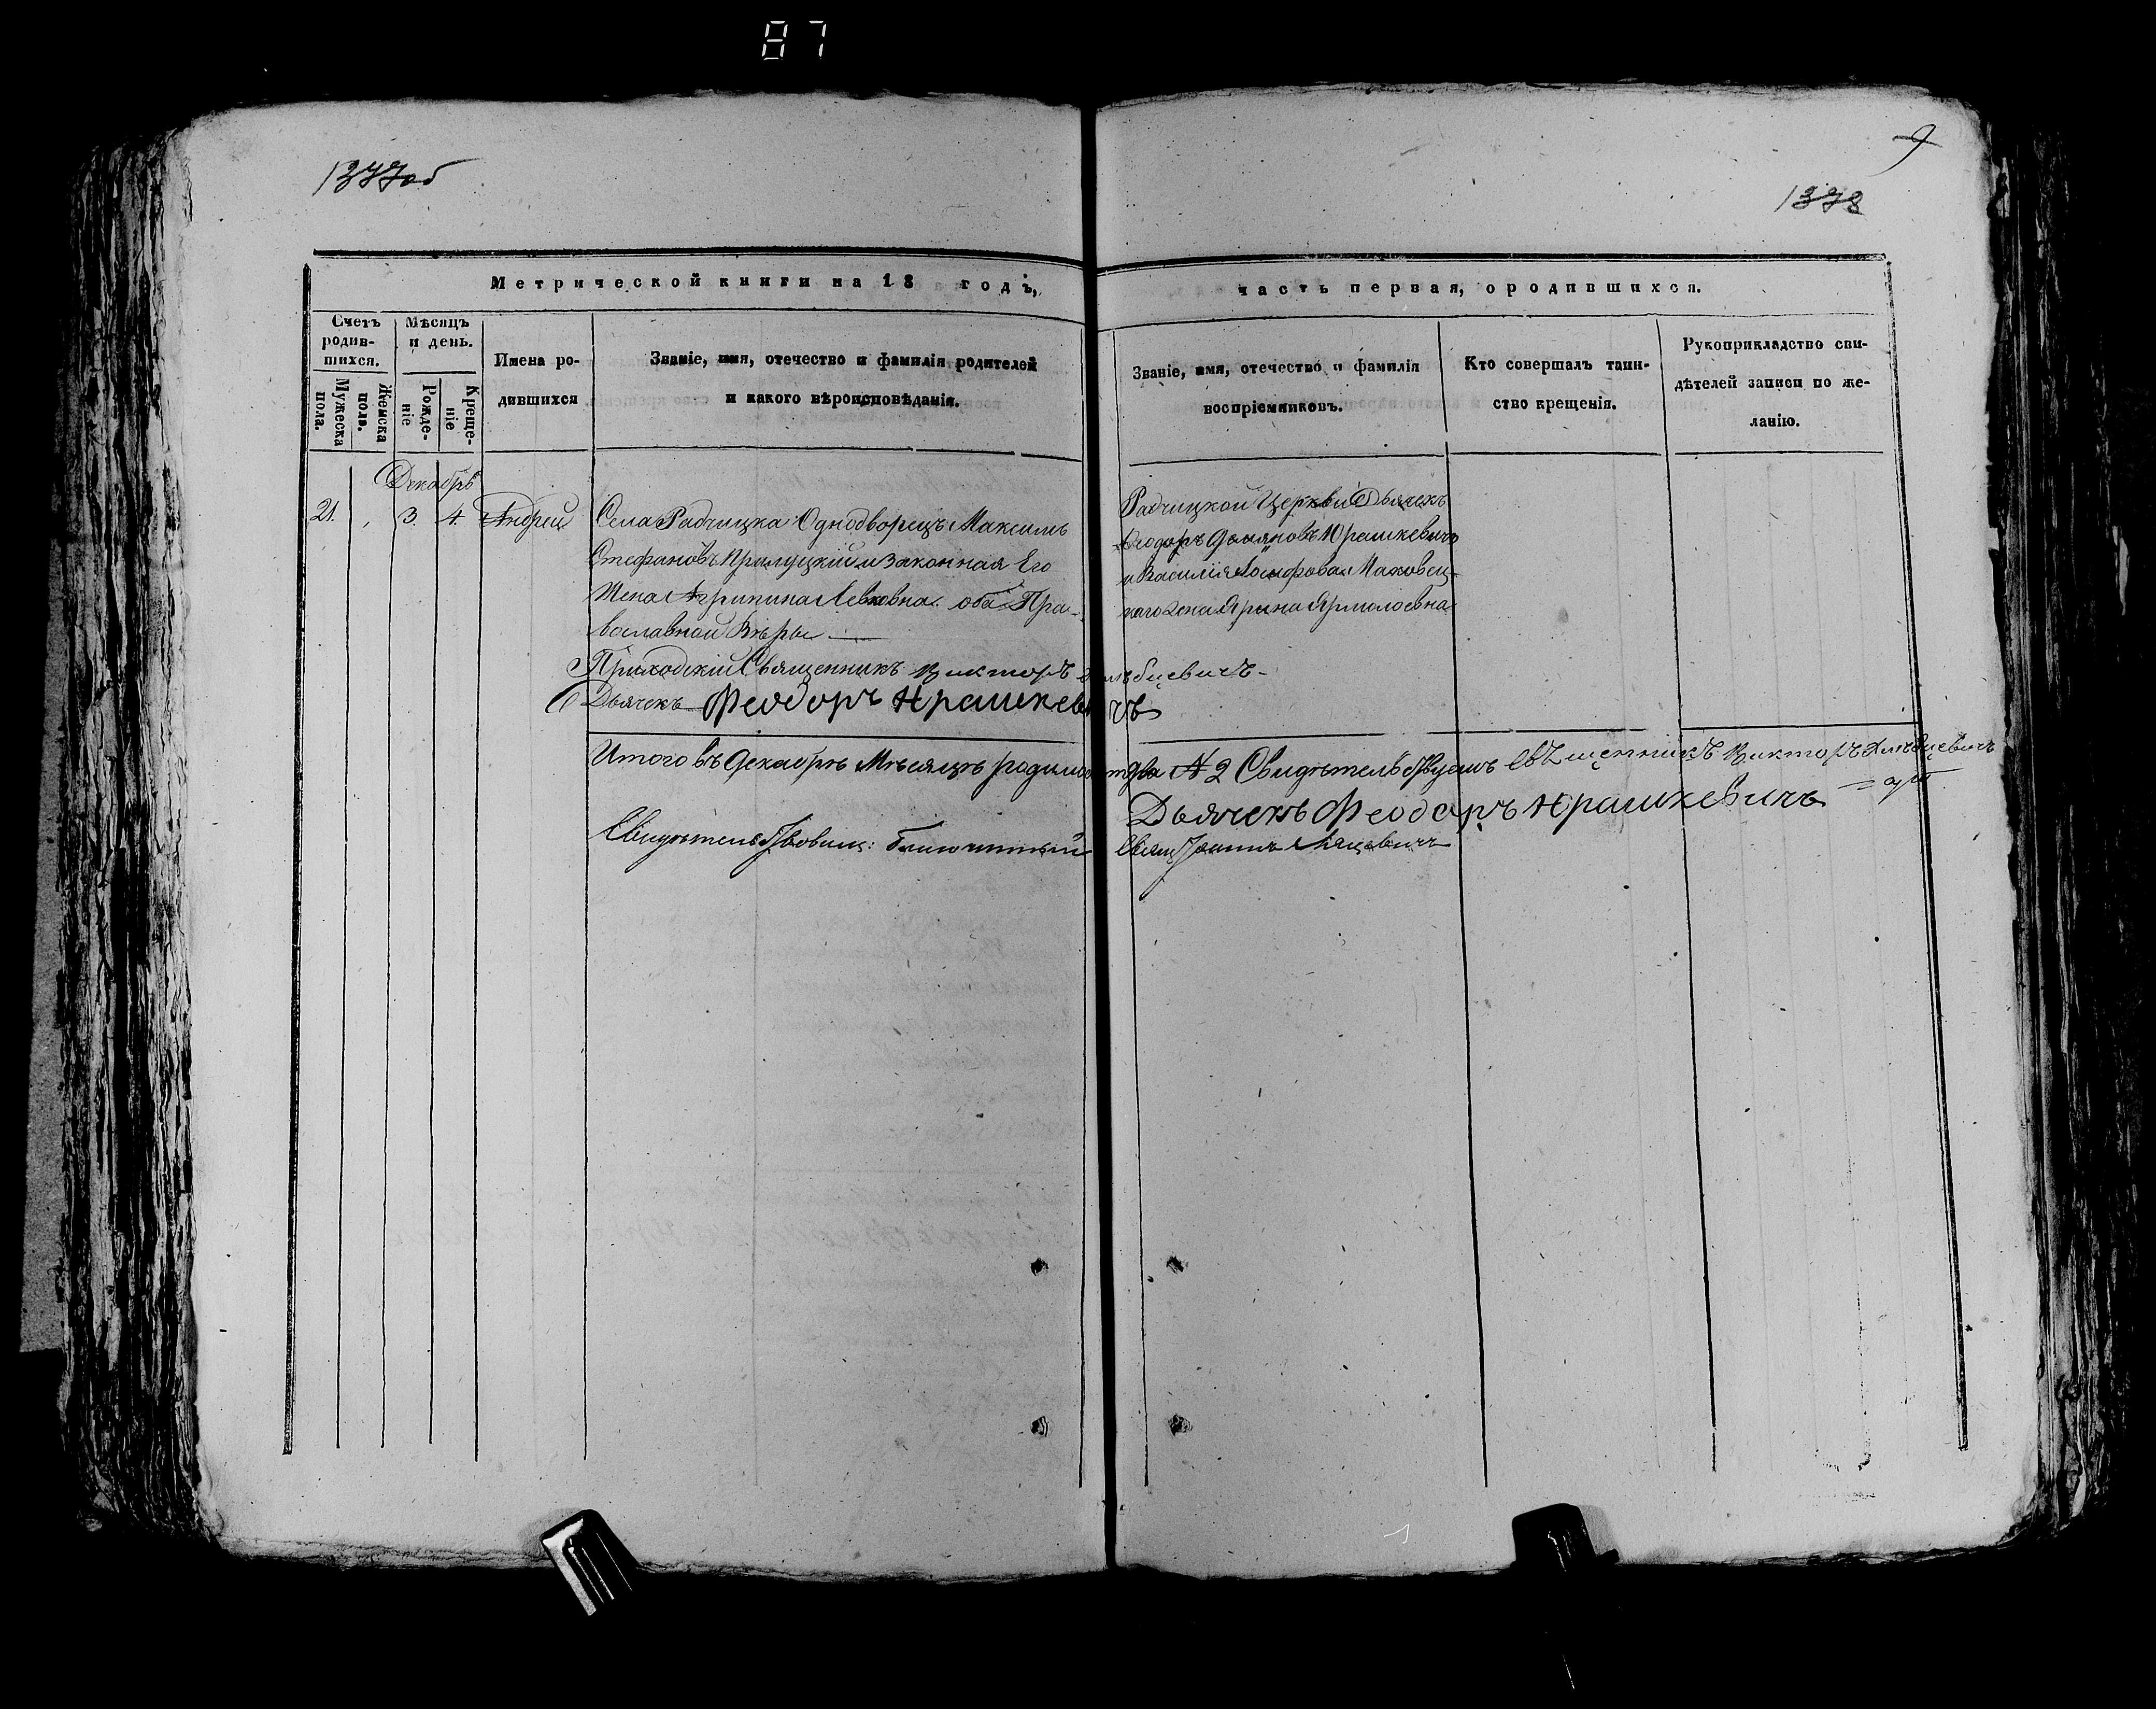 87
1377об
9
1378
Метрической книги на 18 годъ,
часть первая, о родившихся.
Счетъ родив-
шихся.
Мужеска пола.
Женска пола.
Мѣсяцъ и день.
Рожде-
ніе
Креще-
ніе
Имена ро-
дившихся
Званіе, имя, отечество и фамилія родителей
и какого вѣроисповѣданія.
Званіе, имя, отечество и фамилія
воспріемниковъ.
Кто совершалъ таин-
ство крещенія.
Рукоприкладство сви-
дѣтелей записи по же-
ланію.
Декабрь
21. 3. 4. Андрей
Села Радчицка Однодворецъ Максимъ
Стефановъ Прилуцкій и Законная Его
Жена Агрипина Левковна оба Пра-
вославной Вѣры
Радчицкой Церкви Дьячекъ
Феодоръ Юрашкевичъ
и Василія Маковец-
каго жена Ярина Ярмолоевна
Приходскій Священникъ Викторъ
Дьячекъ Феодоръ Юрашкевичъ
Итого въ Декабрѣ Мѣсяцѣ два № 2 Свидѣтельствуемъ Священникъ Викторъ
Дьячекъ Феодоръ Юрашкевичъ
Благочинный Свящ Іоаннъ